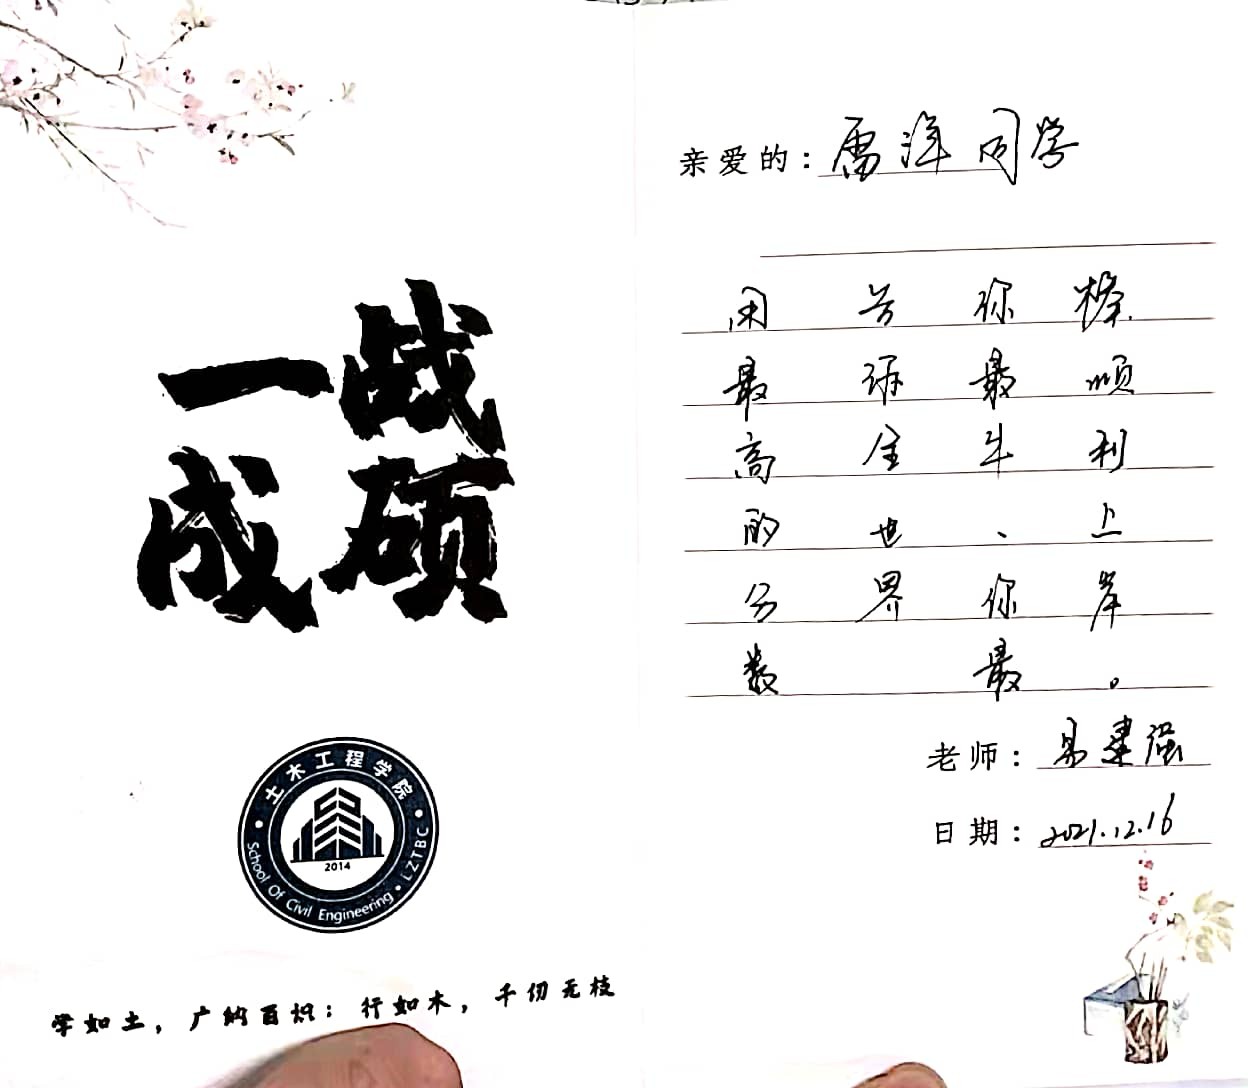 一战
成硕
土木工程学院
School Of Civil Engineering · LZTBC
2014
学如土，广纳百识：行如木，千仞无枝
亲爱的：雷泽同学
用最高的分数
告诉全世界
你最牛、你最
棒.顺利上岸。
老师：易建强
日期：2021.12.16